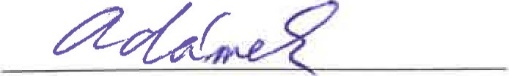 Adámek